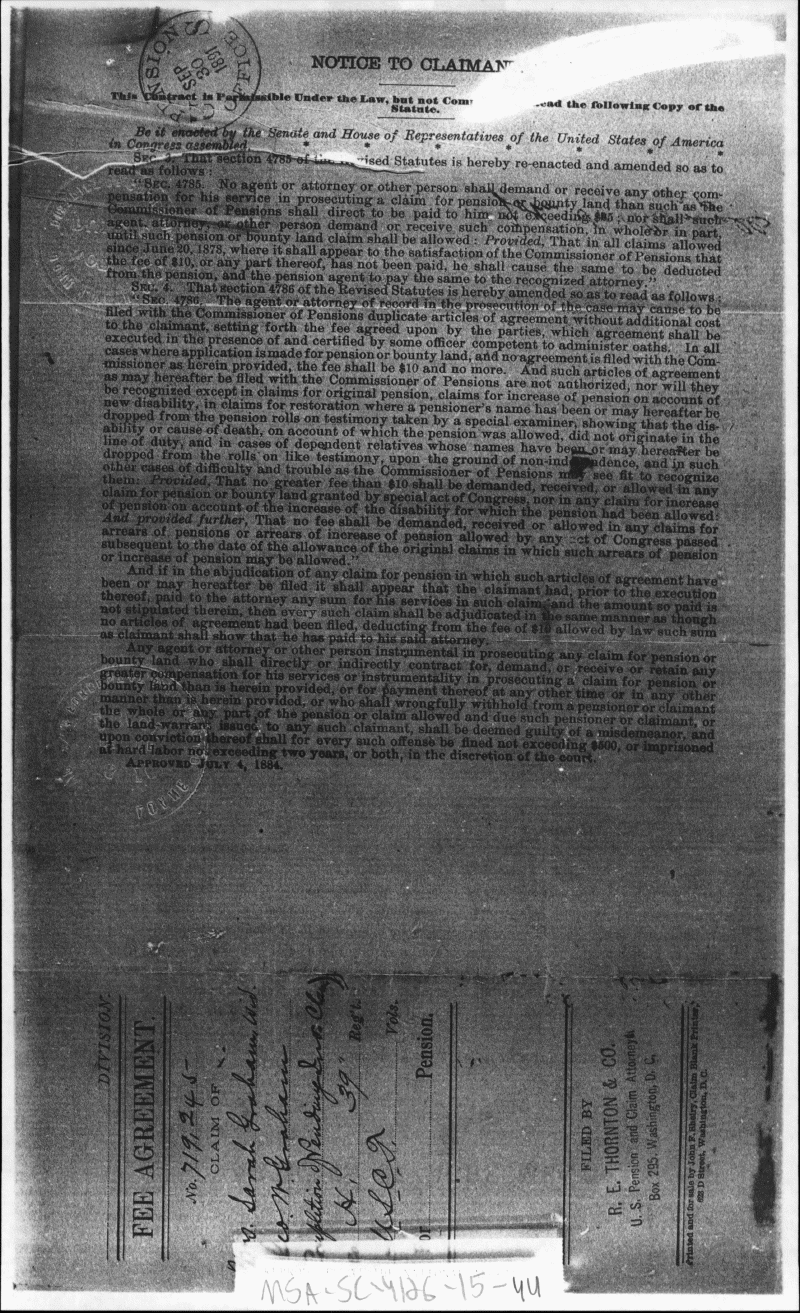 PENSION OFFICE
SEP
30
1891
NOTICE TO CLAIMAN
This Contract is Permissible Under the Law, but not Com ead the following Copy of the
Statute.
Be it enacted by the Senate and House of Representatives of the United States of America
in Congress assembled, * * * * * * *
SEC. 3. That section 4785 of the Revised Statutes is hereby re-enacted and amended so as to
read as follows:
"SEC. 4785. No agent or attorney or other person shall demand or receive any other com-
pensation for his service in prosecuting a claim for pension or bounty land than such as the
Commissioner of Pensions shall direct to be paid to him, not exceeding $25; nor shall such
agent, attorney, or other person demand or receive such compensation, in whole or in part,
until such pension or bounty land claim shall be allowed: Provided, That in all claims allowed
since June 20, 1878, where it shall appear to the satisfaction of the Commissioner of Pensions that
the fee of $10, or any part thereof, has not been paid, he shall cause the same to be deducted
from the pension, and the pension agent to pay the same to the recognized attorney."
SEC. 4. That section 4786 of the Revised Statutes is hereby amended so as to read as follows:
"SEC. 4786. The agent or attorney of record in the prosecution of the case may cause to be
filed with the Commissioner of Pensions duplicate articles of agreement without additional cost
to the claimant, setting forth the fee agreed upon by the parties, which agreement shall be
executed in the presence of and certified by some officer competent to administer oaths. In all
cases where application is made for pension or bounty land, and no agreement is filed with the Com-
missioner as herein provided, the fee shall be $10 and no more. And such articles of agreement
as may hereafter be filed with the Commissioner of Pensions are not authorized, nor will they
be recognized except in claims for original pension, claims for increase of pension on account of
new disability, in claims for restoration where a pensioner's name has been or may hereafter be
dropped from the pension rolls on testimony taken by a special examiner, showing that the dis-
ability or cause of death, on account of which the pension was allowed, did not originate in the
line of duty, and in cases of dependent relatives whose names have been or may hereafter be
dropped from the rolls on like testimony, upon the ground of non-ind dence, and in such
other cases of difficulty and trouble as the Commissioner of Pensions may see fit to recognize
them: Provided, That no greater fee than $10 shall be demanded, received, or allowed in any
claim for pension or bounty land granted by special act of Congress, nor in any claim for increase
of pension on account of the increase of the disability for which the pension had been allowed:
And provided further, That no fee shall be demanded, received or allowed in any claims for
arrears of pensions or arrears of increase of pension allowed by any act of Congress passed
subsequent to the date of the allowance of the original claims in which such arrears of pension
or increase of pension may be allowed."
And if in the abjudication of any claim for pension in which such articles of agreement have
been or may hereafter be filed it shall appear that the claimant had, prior to the execution
thereof, paid to the attorney any sum for his services in such claim, and the amount so paid is
not stipulated therein, then every such claim shall be adjudicated in the same manner as though
no articles of agreement had been filed, deducting from the fee of $10 allowed by law such sum
as claimant shall show that he has paid to his said attorney.
Any agent or attorney or other person instrumental in prosecuting any claim for pension or
bounty land who shall directly or indirectly contract for, demand, or receive or retain any
greater compensation for his services or instrumentality in prosecuting a claim for pension or
bounty land than is herein provided, or for payment thereof at any other time or in any other
manner than is herein provided, or who shall wrongfully withhold from a pensioner or claimant
the whole or any part of the pension or claim allowed and due such pensioner or claimant, or
the land-warrant issued to any such claimant, shall be deemed guilty of a misdemeanor, and
upon conviction thereof shall for every such offense be fined not exceeding $500, or imprisoned
at hard labor not exceeding two years, or both, in the discretion of the court."
APPROVED JULY 4, 1884.
DIVISION.
FEE AGREEMENT.
No. 719,245
CLAIM OF
Sarah Graham, Wid.
Wm Graham
Pending
H, 39" Reg't.
U.S.C.T. Vols.
or Pension.
FILED BY
R. E. THORNTON & CO.
U. S. Pension and Claim Attorneys
Box 295. Washington, D. C.
Printed and for sale by John F. Sheiry, Claim Blank Printer,
623 D Street, Washington, D.C.
MSA-SC-4126-15-44